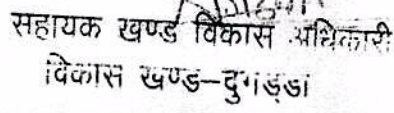 सहायक खण्ड विकास अधिकारी
विकास खण्ड-दुगड्डा